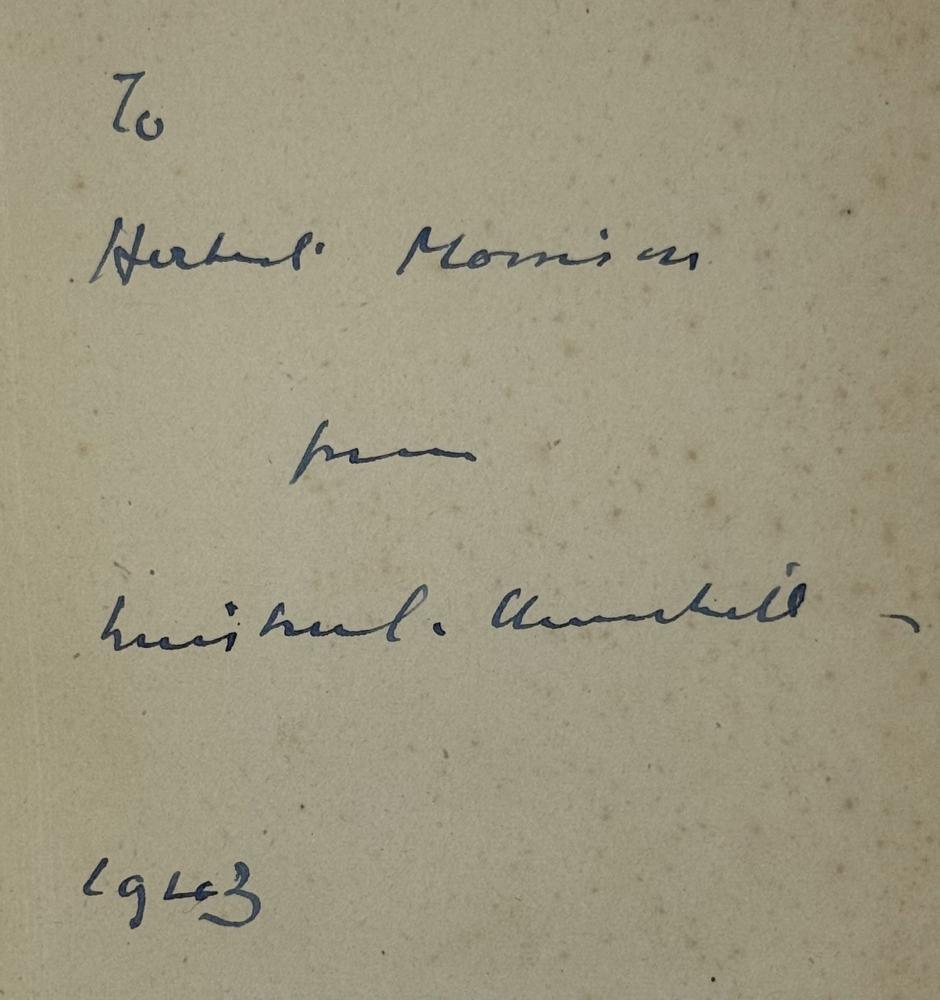 To
Herbert Morrison
from
Winston S. Churchill
1943